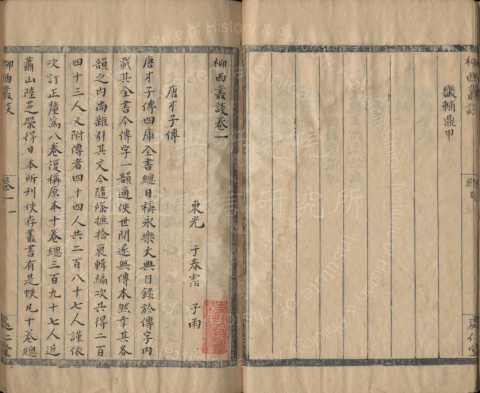 畿輔鼎甲
柳西叢談卷一
東光 于春 子雨
唐才子傳
唐才子傳四庫全書總目稱永樂大典目錄於傳字內
載其全書今傳字一韻適佚世間遂無傳本然幸其各
韻之內尚雜引其文今隨條摭拾裒輯編次共得二百
四十三人又附傳者四十四人共二百八十七人謹依
次訂正釐為八卷復稱原本十卷總三百九十七人近
蕭山陸芝榮得日本所刊佚存叢書有是帙凡十卷總
柳西叢談
卷一
一